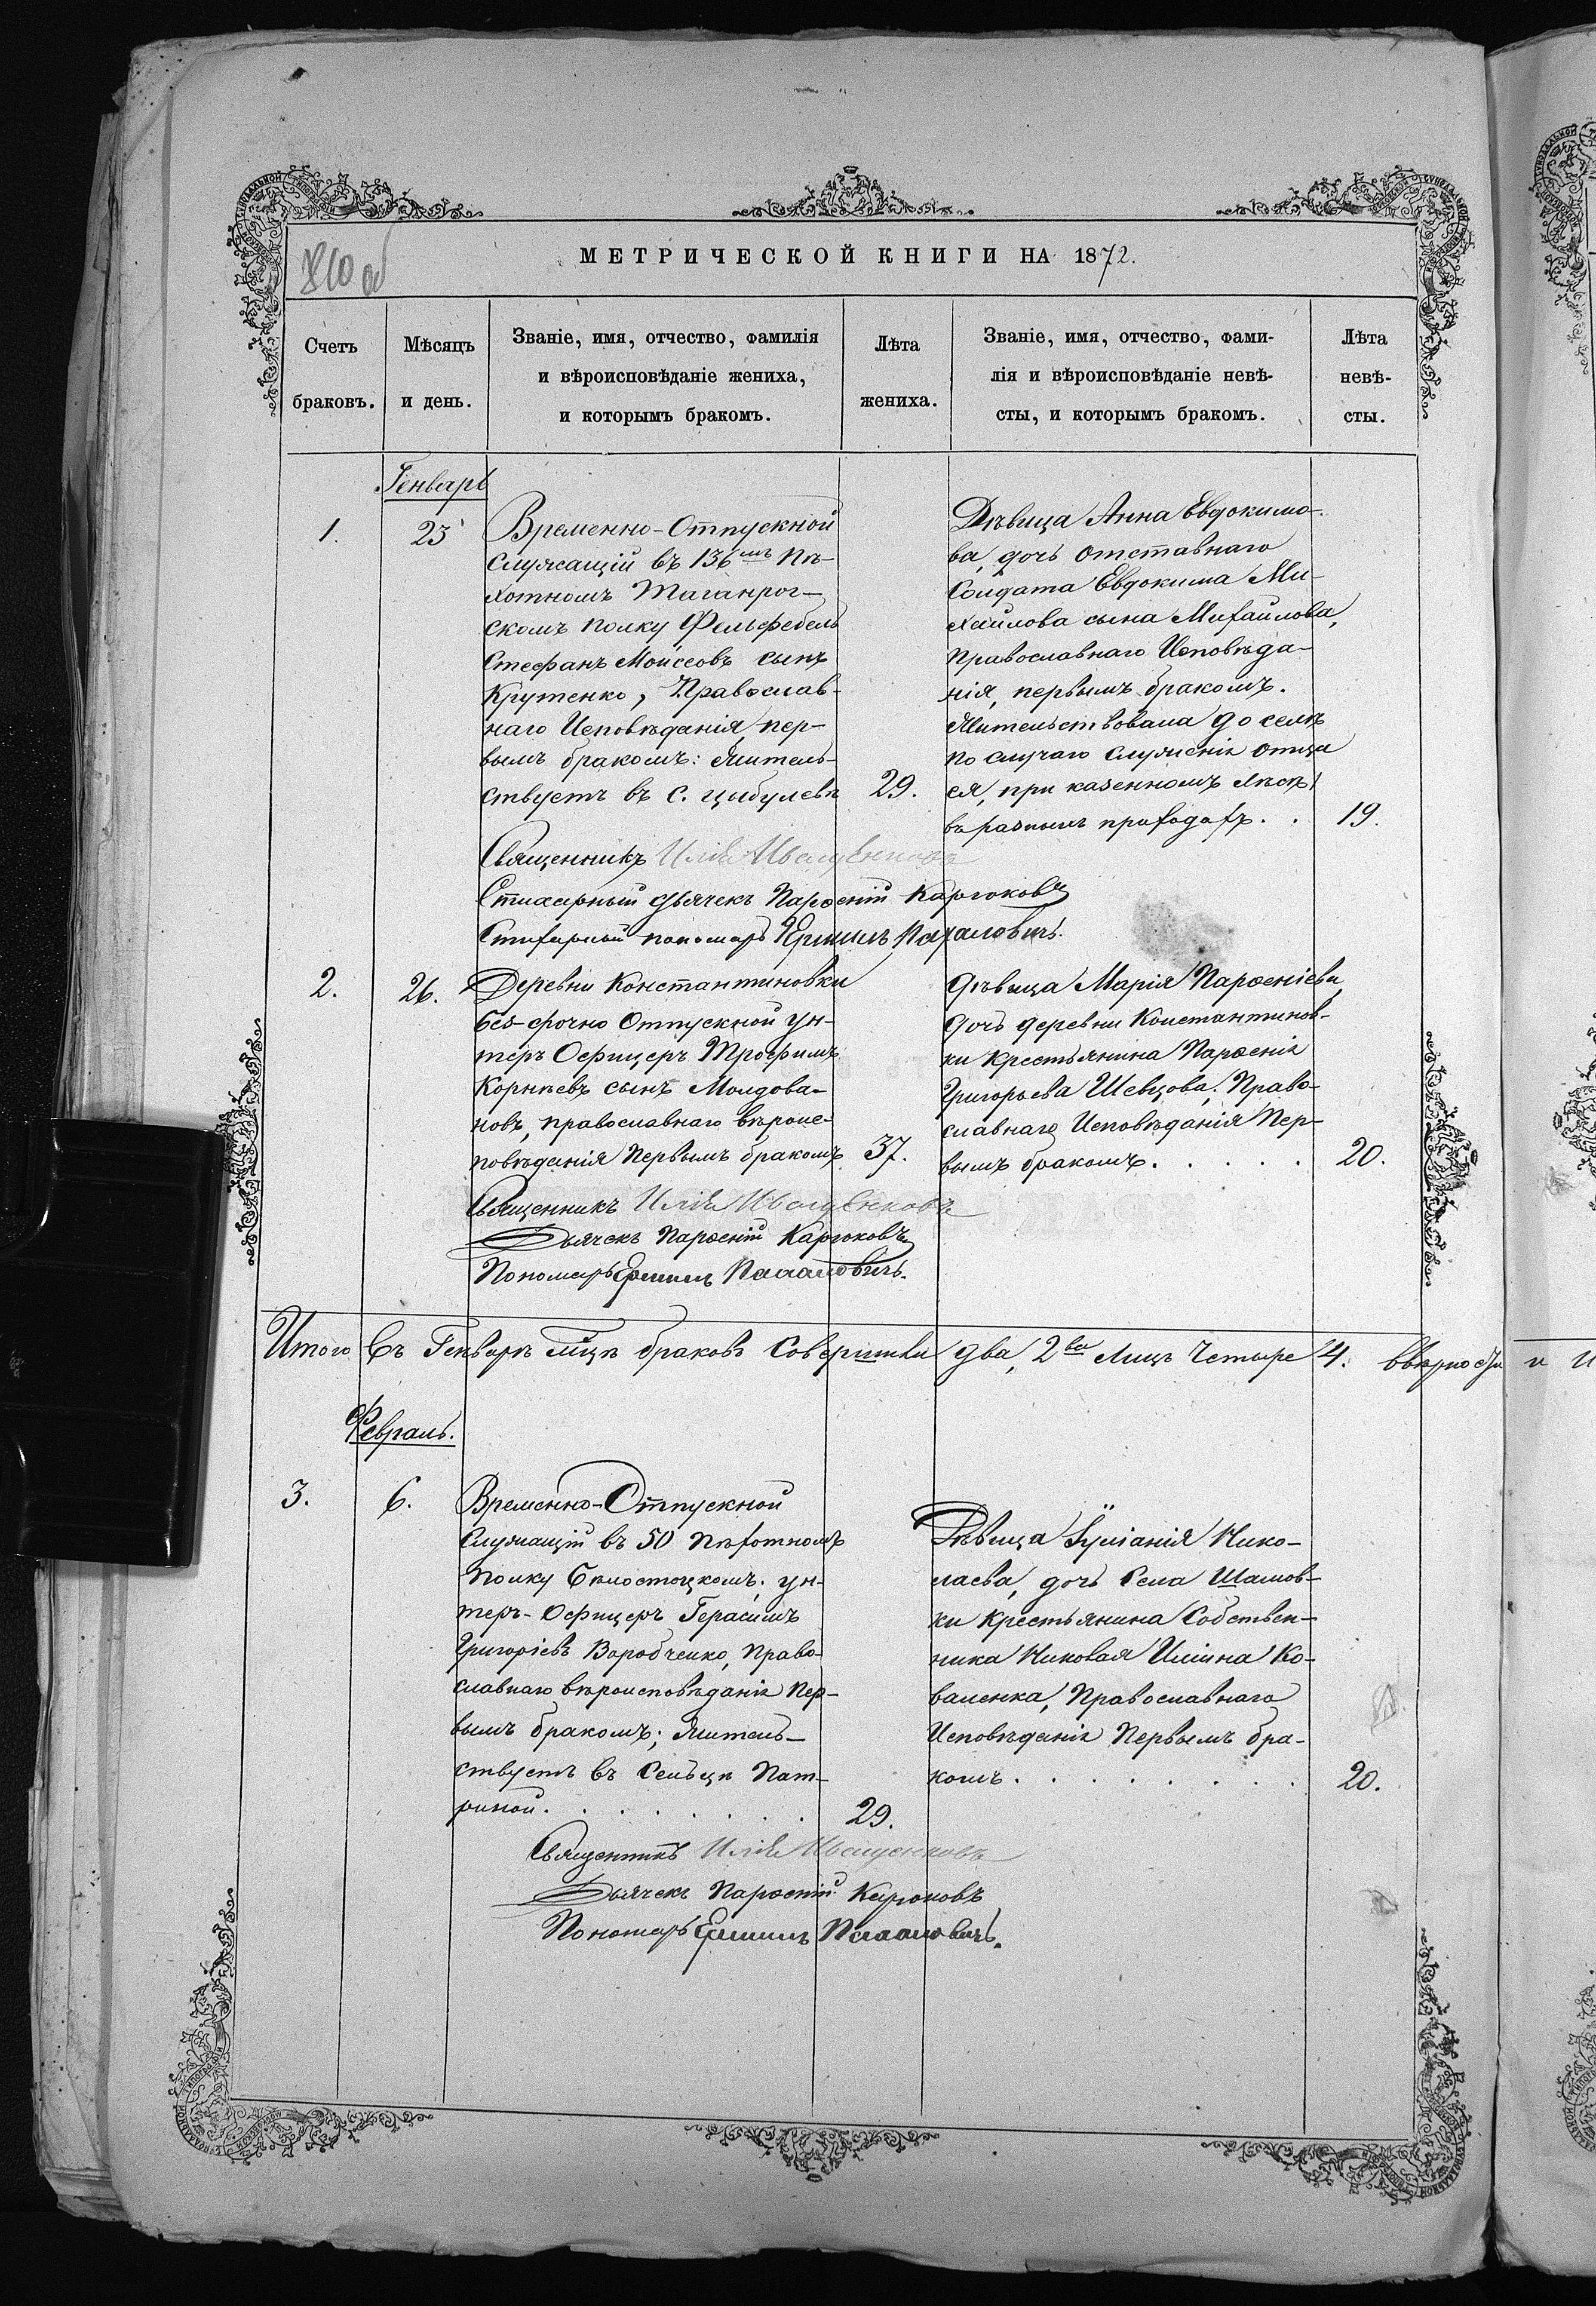 810 об
МЕТРИЧЕСКОЙ КНИГИ НА 1872.
Счетъ
браковъ.
Мѣсяцъ
и день.
Званіе, имя, отчество, фамилія
и вѣроисповѣданіе жениха,
и которымъ бракомъ.
Лѣта
жениха.
Званіе, имя, отчество, фами-
лія и вѣроисповѣданіе невѣ-
сты, и которымъ бракомъ.
Лѣта
невѣ-
сты.
Генварь
1.
23
Временно-Отпускной
служащій въ 136мъ Пѣ-
хотномъ Таганрог-
скомъ полку Фельфебель
Стефанъ Моѵсеовъ сынъ
Крутенко, Православ-
наго Исповѣданія, пер-
вымъ бракомъ: Житель-
ствуетъ въ с. Цыбулевѣ
29.
Дѣвица Анна Евдокимо-
ва, дочь отставнаго
Солдата Евдокима Ми-
хайлова сына Михайлова,
православнаго Исповѣда-
нія, первымъ бракомъ.
Жительствовала до селѣ
по случаю служенія отца
ея, при казенномъ лѣсѣ,
въ разныхъ приходахъ. .
19.
Священникъ Илія Иващенковъ
Стихарный дьячекъ Парѳеній Каргоковъ
Стихарный пономарь Ермилъ
2.
26.
Деревни Константиновки
без-срочно Отпускной ун-
теръ Офицеръ Трофимъ
Корнѣевъ сынъ Молдова-
новъ, православнаго вѣроис-
повѣданія Первымъ бракомъ
37.
дѣвица Марія Парѳеніева,
дочь деревни Константинов-
ки крестьянина Парѳенія
Григорьева Шевцова, Право-
славнаго Исповѣданія Пер-
вымъ бракомъ. . . . .
20.
Священникъ Илія Иващенковъ
Дьячекъ Парѳеній Каргоковъ
Пономарь Ермилъ
Итого Въ Генварѣ мцѣ браковъ Совершили два, 2ва Лицъ Четыре 4.
Февраль.
3.
6.
Временно-Отпускной
Служащій въ 50 Пѣхотномъ
полку Бѣлостоцкомъ, ун-
теръ-Офицеръ Герасимъ
Григоріевъ Воробченко, Право-
славнаго вѣроисповѣданія Пер-
вымъ бракомъ; Житель-
ствуетъ въ Сельцѣ Пат-
риной. . . . . . .
29.
Дѣвица Іуліанія Нико-
лаева, дочь Села Шамов-
ки крестьянина Собствен-
ника Николая Иліина Ко-
валенка, Православнаго
Исповѣданія Первымъ бра-
комъ . . . . . . .
20.
Священникъ Илія Иващенковъ
Дьячекъ Парѳеній Каргоковъ
Пономарь Ермилъ